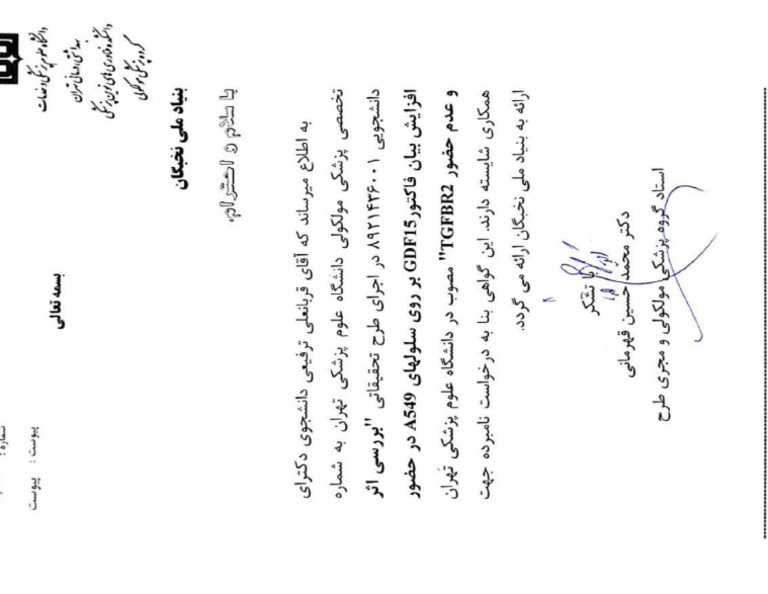 بسمه تعالی
دانشگاه علوم پزشکی و خدمات
بهداشتی درمانی تهران
دانشکده فناوری‌های نوین پزشکی
گروه پزشکی مولکولی
شماره :
پیوست : پیوست
بنیاد ملی نخبگان
با سلام و احترام،
به اطلاع میرساند که آقای قربانعلی ترفیعی دانشجوی دکترای
تخصصی پزشکی مولکولی دانشگاه علوم پزشکی تهران به شماره
دانشجویی ۸۹۲۱۴۳۶۰۰۱ در اجرای طرح تحقیقاتی "بررسی اثر
افزایش بیان فاکتور GDF15 بر روی سلولهای A549 در حضور
و عدم حضور TGFBR2" مصوب در دانشگاه علوم پزشکی تهران
همکاری شایسته دارند. این گواهی بنا به درخواست نامبرده جهت
ارائه به بنیاد ملی نخبگان ارائه می گردد.
با تشکر
دکتر محمد حسین قهرمانی
استاد گروه پزشکی مولکولی و مجری طرح